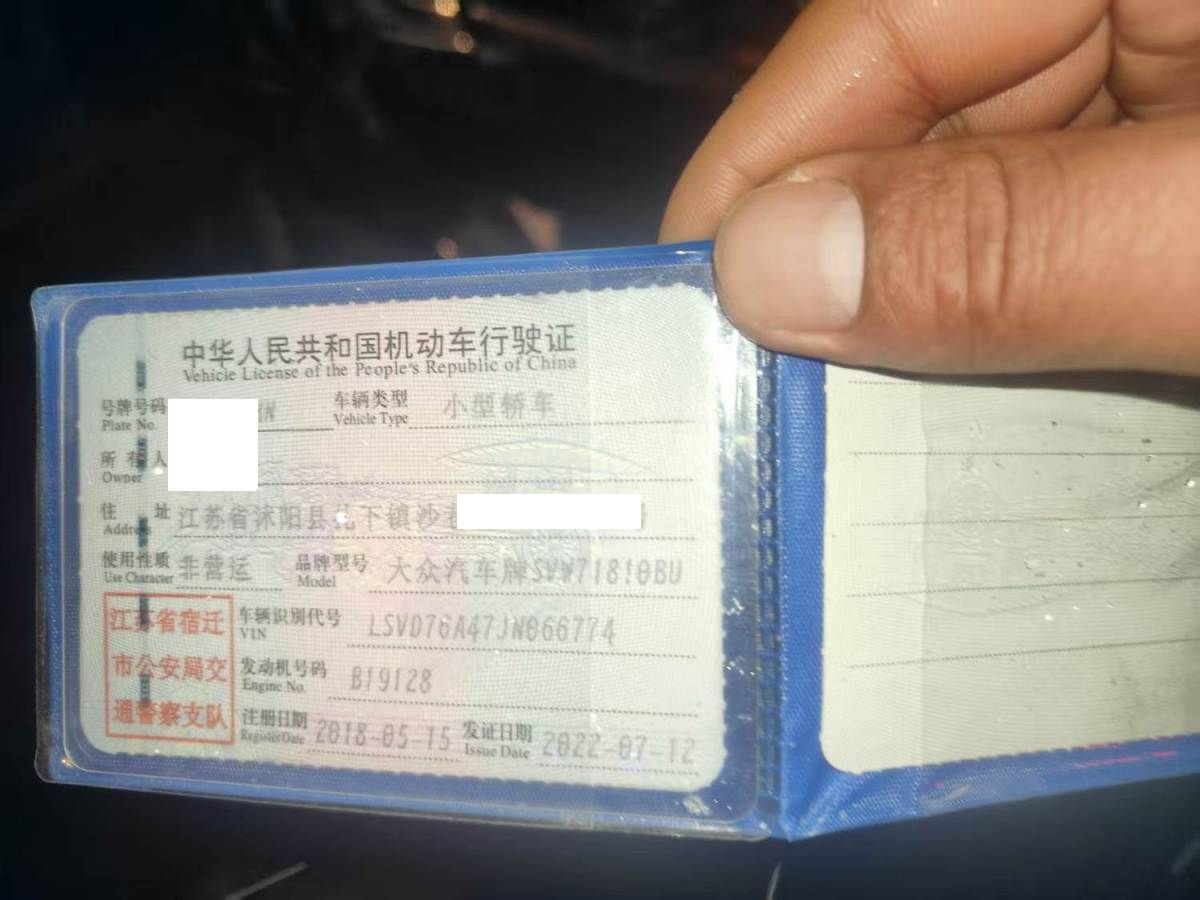 中华人民共和国机动车行驶证
Vehicle License of the People's Republic of China
号牌号码 N 车辆类型 小型轿车
Plate No. Vehicle Type
所有人
Owner
住址 江苏省沭阳县扎下镇沙
Address
使用性质 非营运 品牌型号 大众汽车牌SVW71810BU
Use Character Model
江苏省宿迁 车辆识别代号 LSVD76A47JN066774
VIN
市公安局交 发动机号码 B19128
Engine No.
通警察支队 注册日期 2018-05-15 发证日期 2022-07-12
Register Date Issue Date